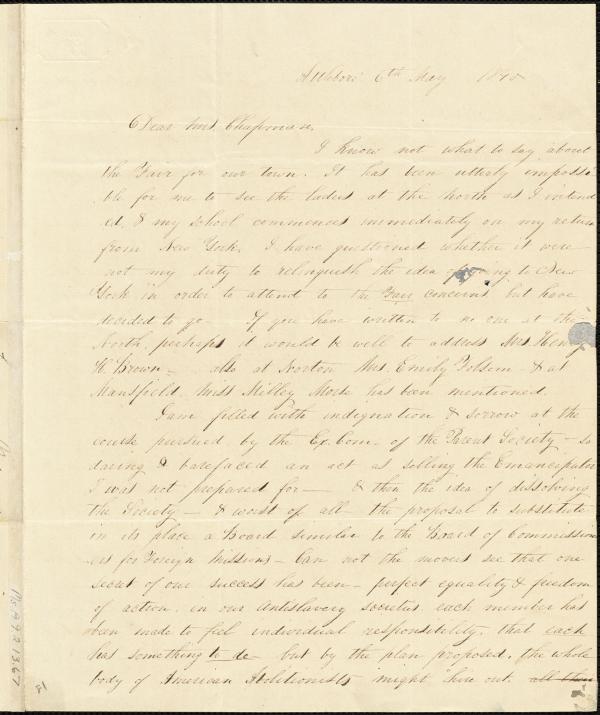 Attleboro' 6th May 1840
Dear Mrs. Chapman,
I know not what to say about
the Fair for our town. It has been utterly impossi
ble for me to see the ladies at the North as I intend
ed, & my school commences immediately on my return
from New York. I have questioned whether it were
not my duty to relinquish the idea of going to New
York in order to attend to the Fair concerns but have
decided to go. If you have written to no one at the
North, perhaps it would be well to address Mrs Henry
H. Brown - also at Norton Mrs. Emily Folsom - & at
Mansfield, Miss Milley Morse has been mentioned.
I am filled with indignation & sorrow at the
course pursued by the Ex. Com. of the Parent Society - so
daring & barefaced an act as selling the Emancipator
I was not prepared for — & then the idea of dissolving
the Society - & worst of all - the proposal to substitute
in its place a Board similar to the Board of Commission
ers for Foreign Missions - Can not the movers see that one
secret of our success has been - perfect equality & freedom
of action. in our Antislavery societies each member has
been made to feel individual responsibility. that each
has something to do - but by the plan proposed, the whole
body of American Abolitionists might hire out
Ms A.9.2.13.67